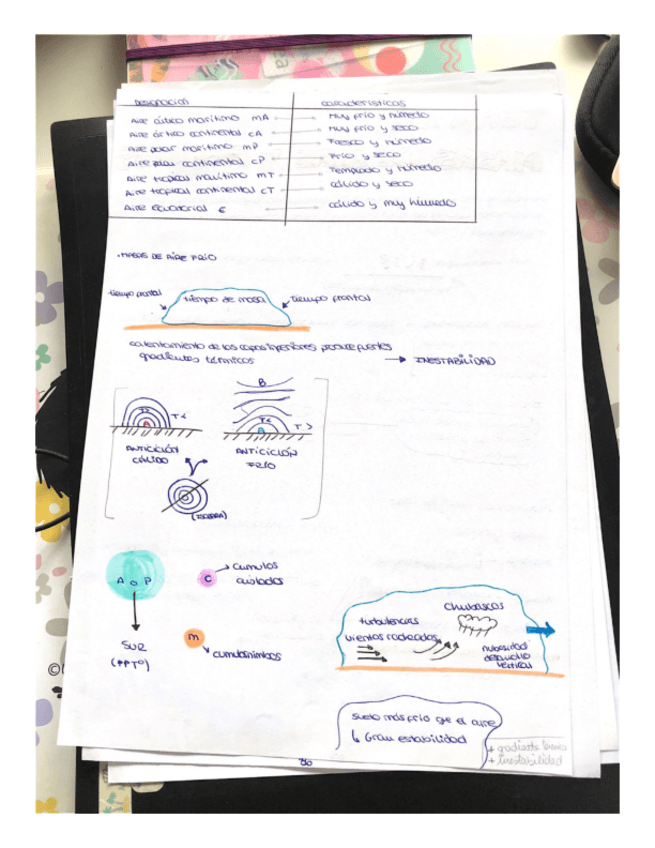 Designación
características
Aire ártico marítimo mA
Muy frío y húmedo
Aire ártico continental cA
Muy frío y seco
Aire polar marítimo mP
Fresco y húmedo
Aire polar continental cP
Frío y seco
Aire tropical marítimo mT
Templado y húmedo
Aire tropical continental cT
cálido y seco
Aire Ecuatorial E
cálido y muy húmedo
. MASAS DE AIRE FRÍO
tiempo frontal
tiempo de masa
tiempo frontal
calentamiento de las capas inferiores produce fuertes
gradientes térmicos → INESTABILIDAD
B
T>
T<
A
T<
T>
A
ANTICICLÓN
CÁLIDO
ANTICICLÓN
FRÍO
A o P
C
cumulos
aislados
SUR
(↑↑Tº)
m
cumulonimbos
chubascos
turbulencias
vientos racheados
nubosidad
desarrollo
vertical
suelo más frío que el aire
↳ Gran estabilidad
+ gradiente térmico
+ inestabilidad